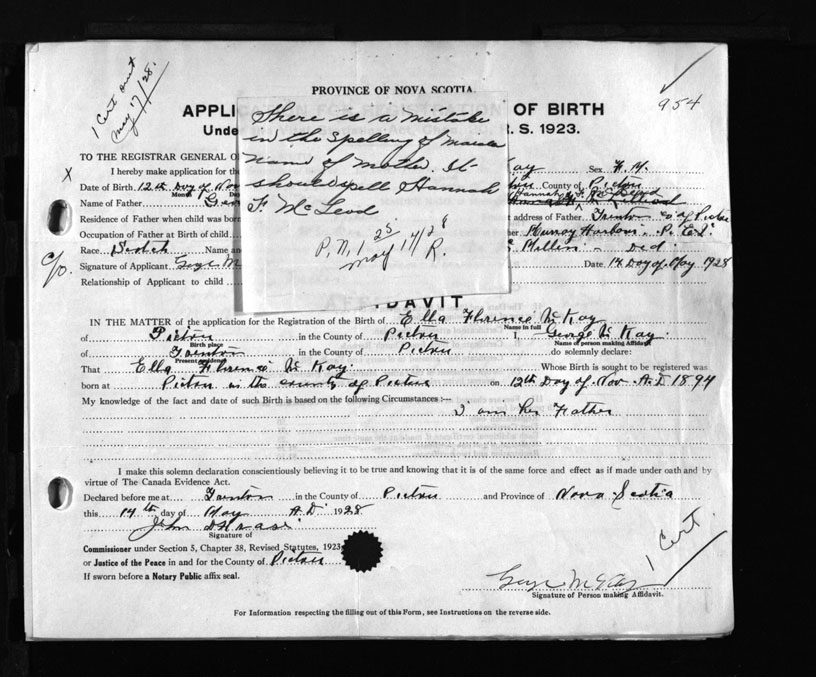 1 Cert out
May 17/28.
PROVINCE OF NOVA SCOTIA
954
APPLI OF BIRTH
Unde R. S. 1923.
There is a mistake
in the spelling of maiden
name of mother. It
should spell Hannah
F. McLeod
P.N. 1 25
May 17/28
R.
TO THE REGISTRAR GENERAL O
X
I hereby make application for the Kay Sex F.
Date of Birth 12th Day of Nov County of Pictou
Month
Name of Father Geo Hannah F. McLeod
Residence of Father when child was bor address of Father Trenton Co of Pictou
Occupation of Father at Birth of child Murray Harbour P.E.I.
Race Scotch Name an Ded.
c/o.
Signature of Applicant George M Date 14 Day of May 1928
Relationship of Applicant to child
IDAVIT
IN THE MATTER of the application for the Registration of the Birth of Ella Florence McKay
Name in full
of Pictou in the County of Pictou I, George McKay
Birth place Name of person making Affidavit
of Trenton in the County of Pictou do solemnly declare:
Present residence
That Ella Florence McKay Whose Birth is sought to be registered was
born at Pictou in the county of Pictou on 12th Day of Nov. A.D. 1894
My knowledge of the fact and date of such Birth is based on the following Circumstances :—
I am her Father
I make this solemn declaration conscientiously believing it to be true and knowing that it is of the same force and effect as if made under oath and by
virtue of The Canada Evidence Act.
Declared before me at Trenton in the County of Pictou and Province of Nova Scotia
this 14th day of May A.D. 1928
John
Signature of
Commissioner under Section 5, Chapter 38, Revised Statutes, 1923
or Justice of the Peace in and for the County of Pictou
If sworn before a Notary Public affix seal.
1 Cert.
George McKay
Signature of Person making Affidavit.
For Information respecting the filling out of this Form, see Instructions on the reverse side.